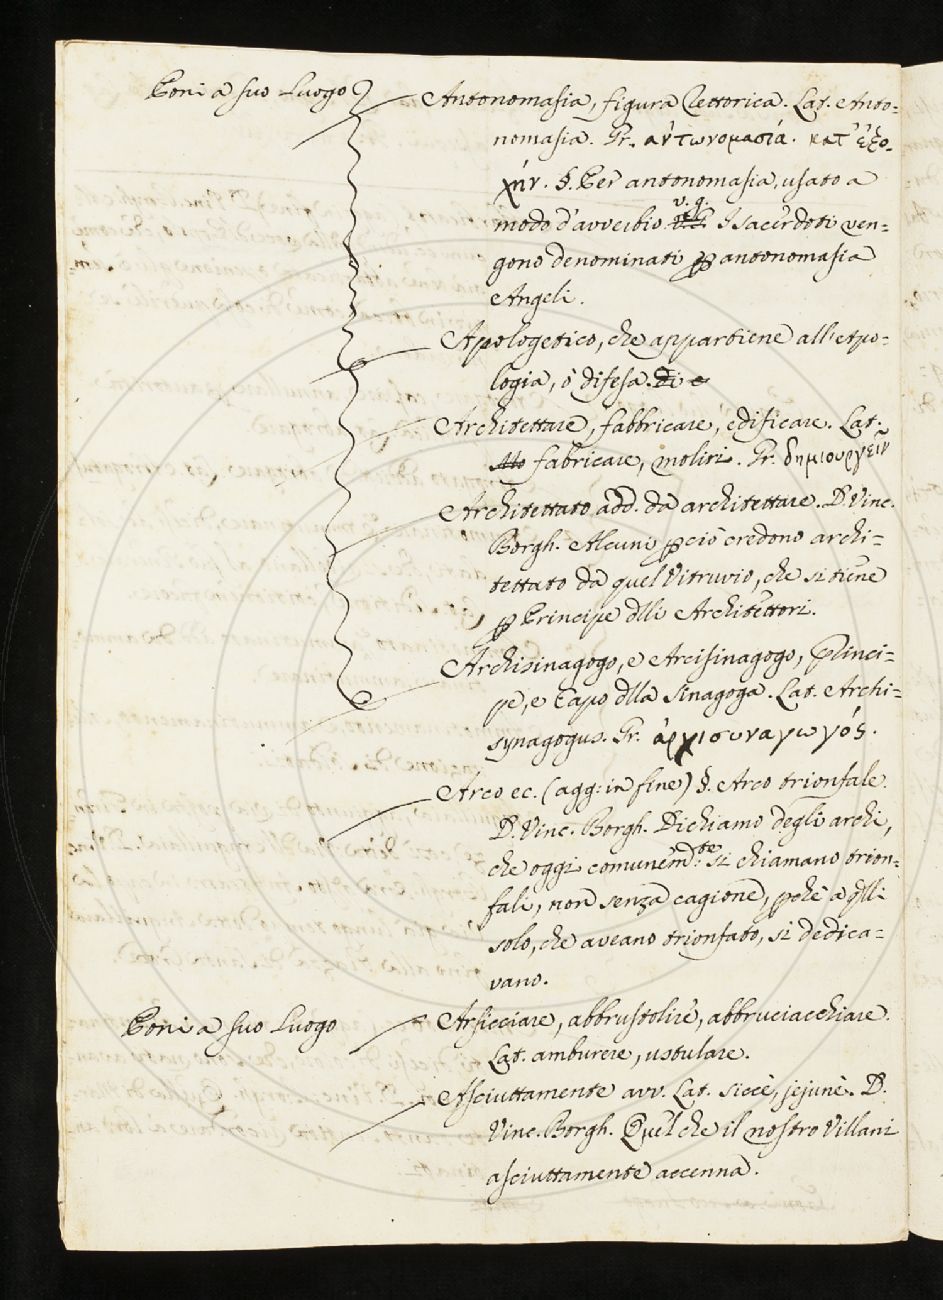 Poni a suo Luogo
Antonomasia, figura Rettorica. Lat. Anto=
nomasia. Gr. ἀντωνομασία. κατ' ἐξο=
χήν. §. Per antonomasia, usato a
modo d'avverbio v.g. I sacerdoti ven=
gono denominati p antonomasia
Angeli.
Apologetico, che appartiene all'Apo=
logia, ò difesa. Di e
Architettare, fabbricare, edificare. Lat.
fabricare, moliri. Gr. δημιουργεῖν
Architettato add. da architettare. D. Vinc.
Borgh. Alcuni pciò credono archi=
tettato da quel Vitruvio, che si tiene
p Principe dlli Architettori.
Archisinagogo, e Arcisinagogo, Princi=
pe, e Capo dlla Sinagoga. Lat. Archi=
synagogus. Gr. ἀρχισυναγωγός.
Arco ec. (agg: in fine) §. Arco trionfale.
D. Vinc. Borgh. Dichiamo degli archi,
che oggi comunem:te si chiamano trion=
fali, non senza cagione, pchè a qlli
solo, che aveano trionfato, si dedica=
vano.
Poni a suo Luogo
Arsicciare, abbrustolire, abbruciacchiare.
Lat. amburere, ustulare.
Asciuttamente avv. Lat. siccè, jejunè. D.
Vinc. Borgh. Quel che il nostro Villani
asciuttamente accenna.